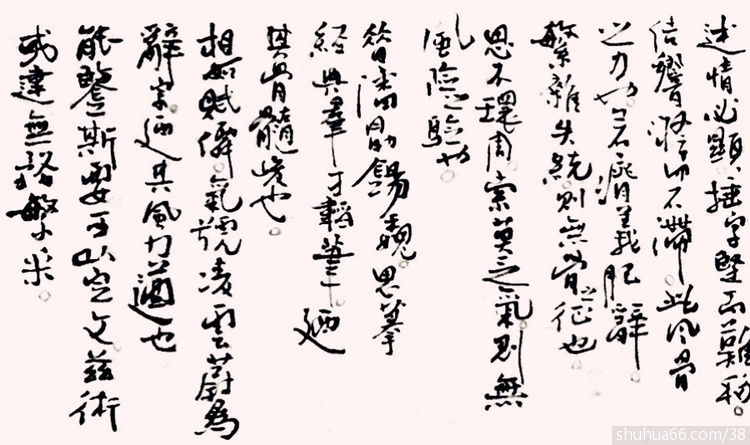 述情必顯、捶字堅而難移。
結響凝而不滯此風骨
之力也若瘠義肥辭
繁雜失統則無骨之征也
思不環周索莫乏氣則無
風之驗也
昔潘勖錫魏思摹
經典羣才韜筆迺
其骨髓峻也。
相如賦僊氣號凌雲蔚爲
辭宗迺其風力遒也
能鑒斯要可以定文茲術
或違無務繁采。
shuhua66.com/38